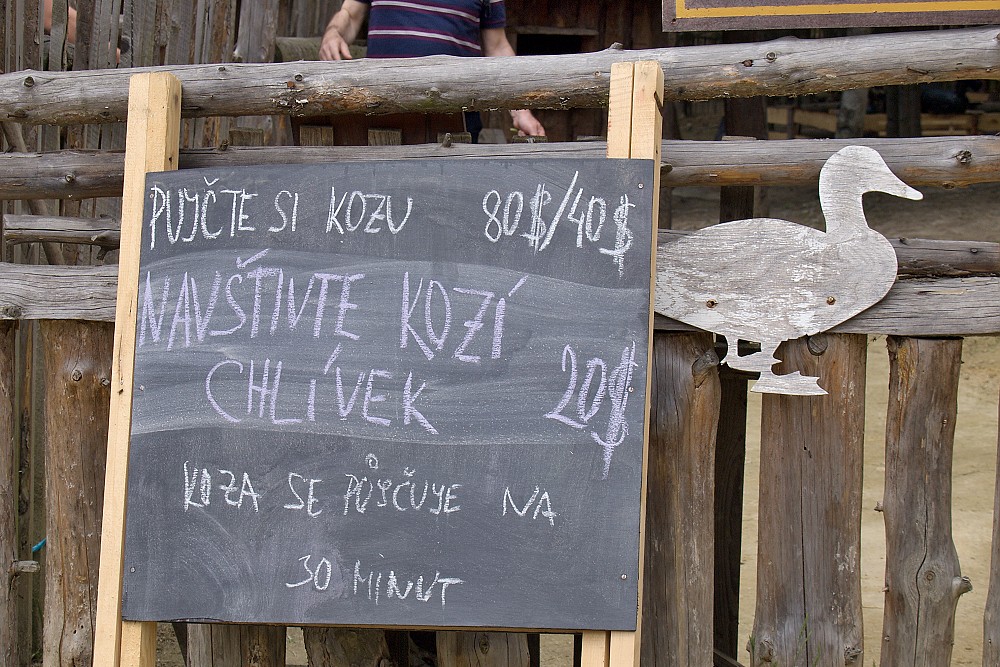 PUJČTE SI KOZU 80$/40$
NAVŠTIVTE KOZÍ
CHLÍVEK 20$
KOZA SE PŮJČUJE NA
30 MINUT